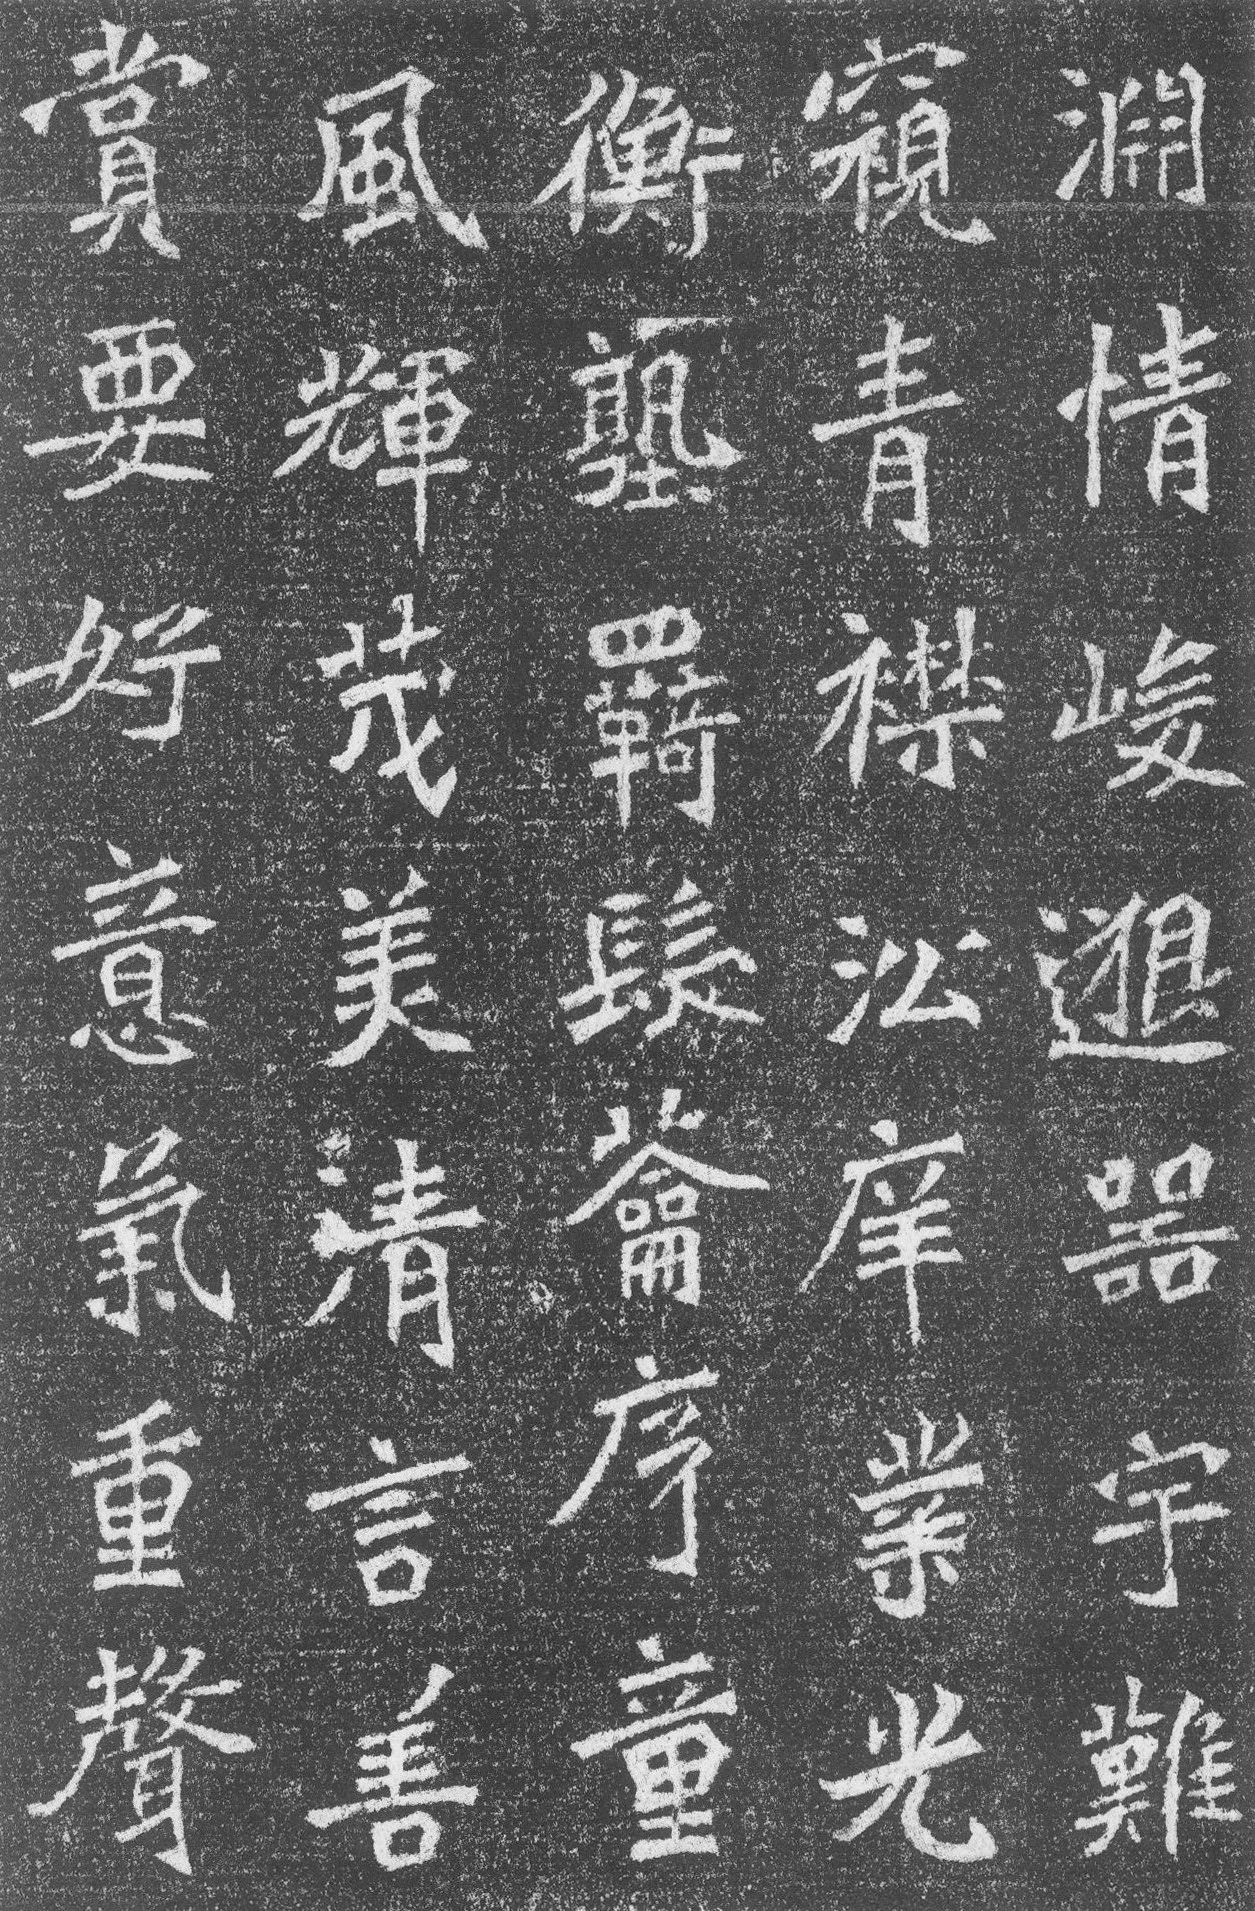 淵情峻邈器宇難
窺青襟㳂庠業光
衡塾羈髮籥序童
風輝茂美清言善
賞要好意氣重聲